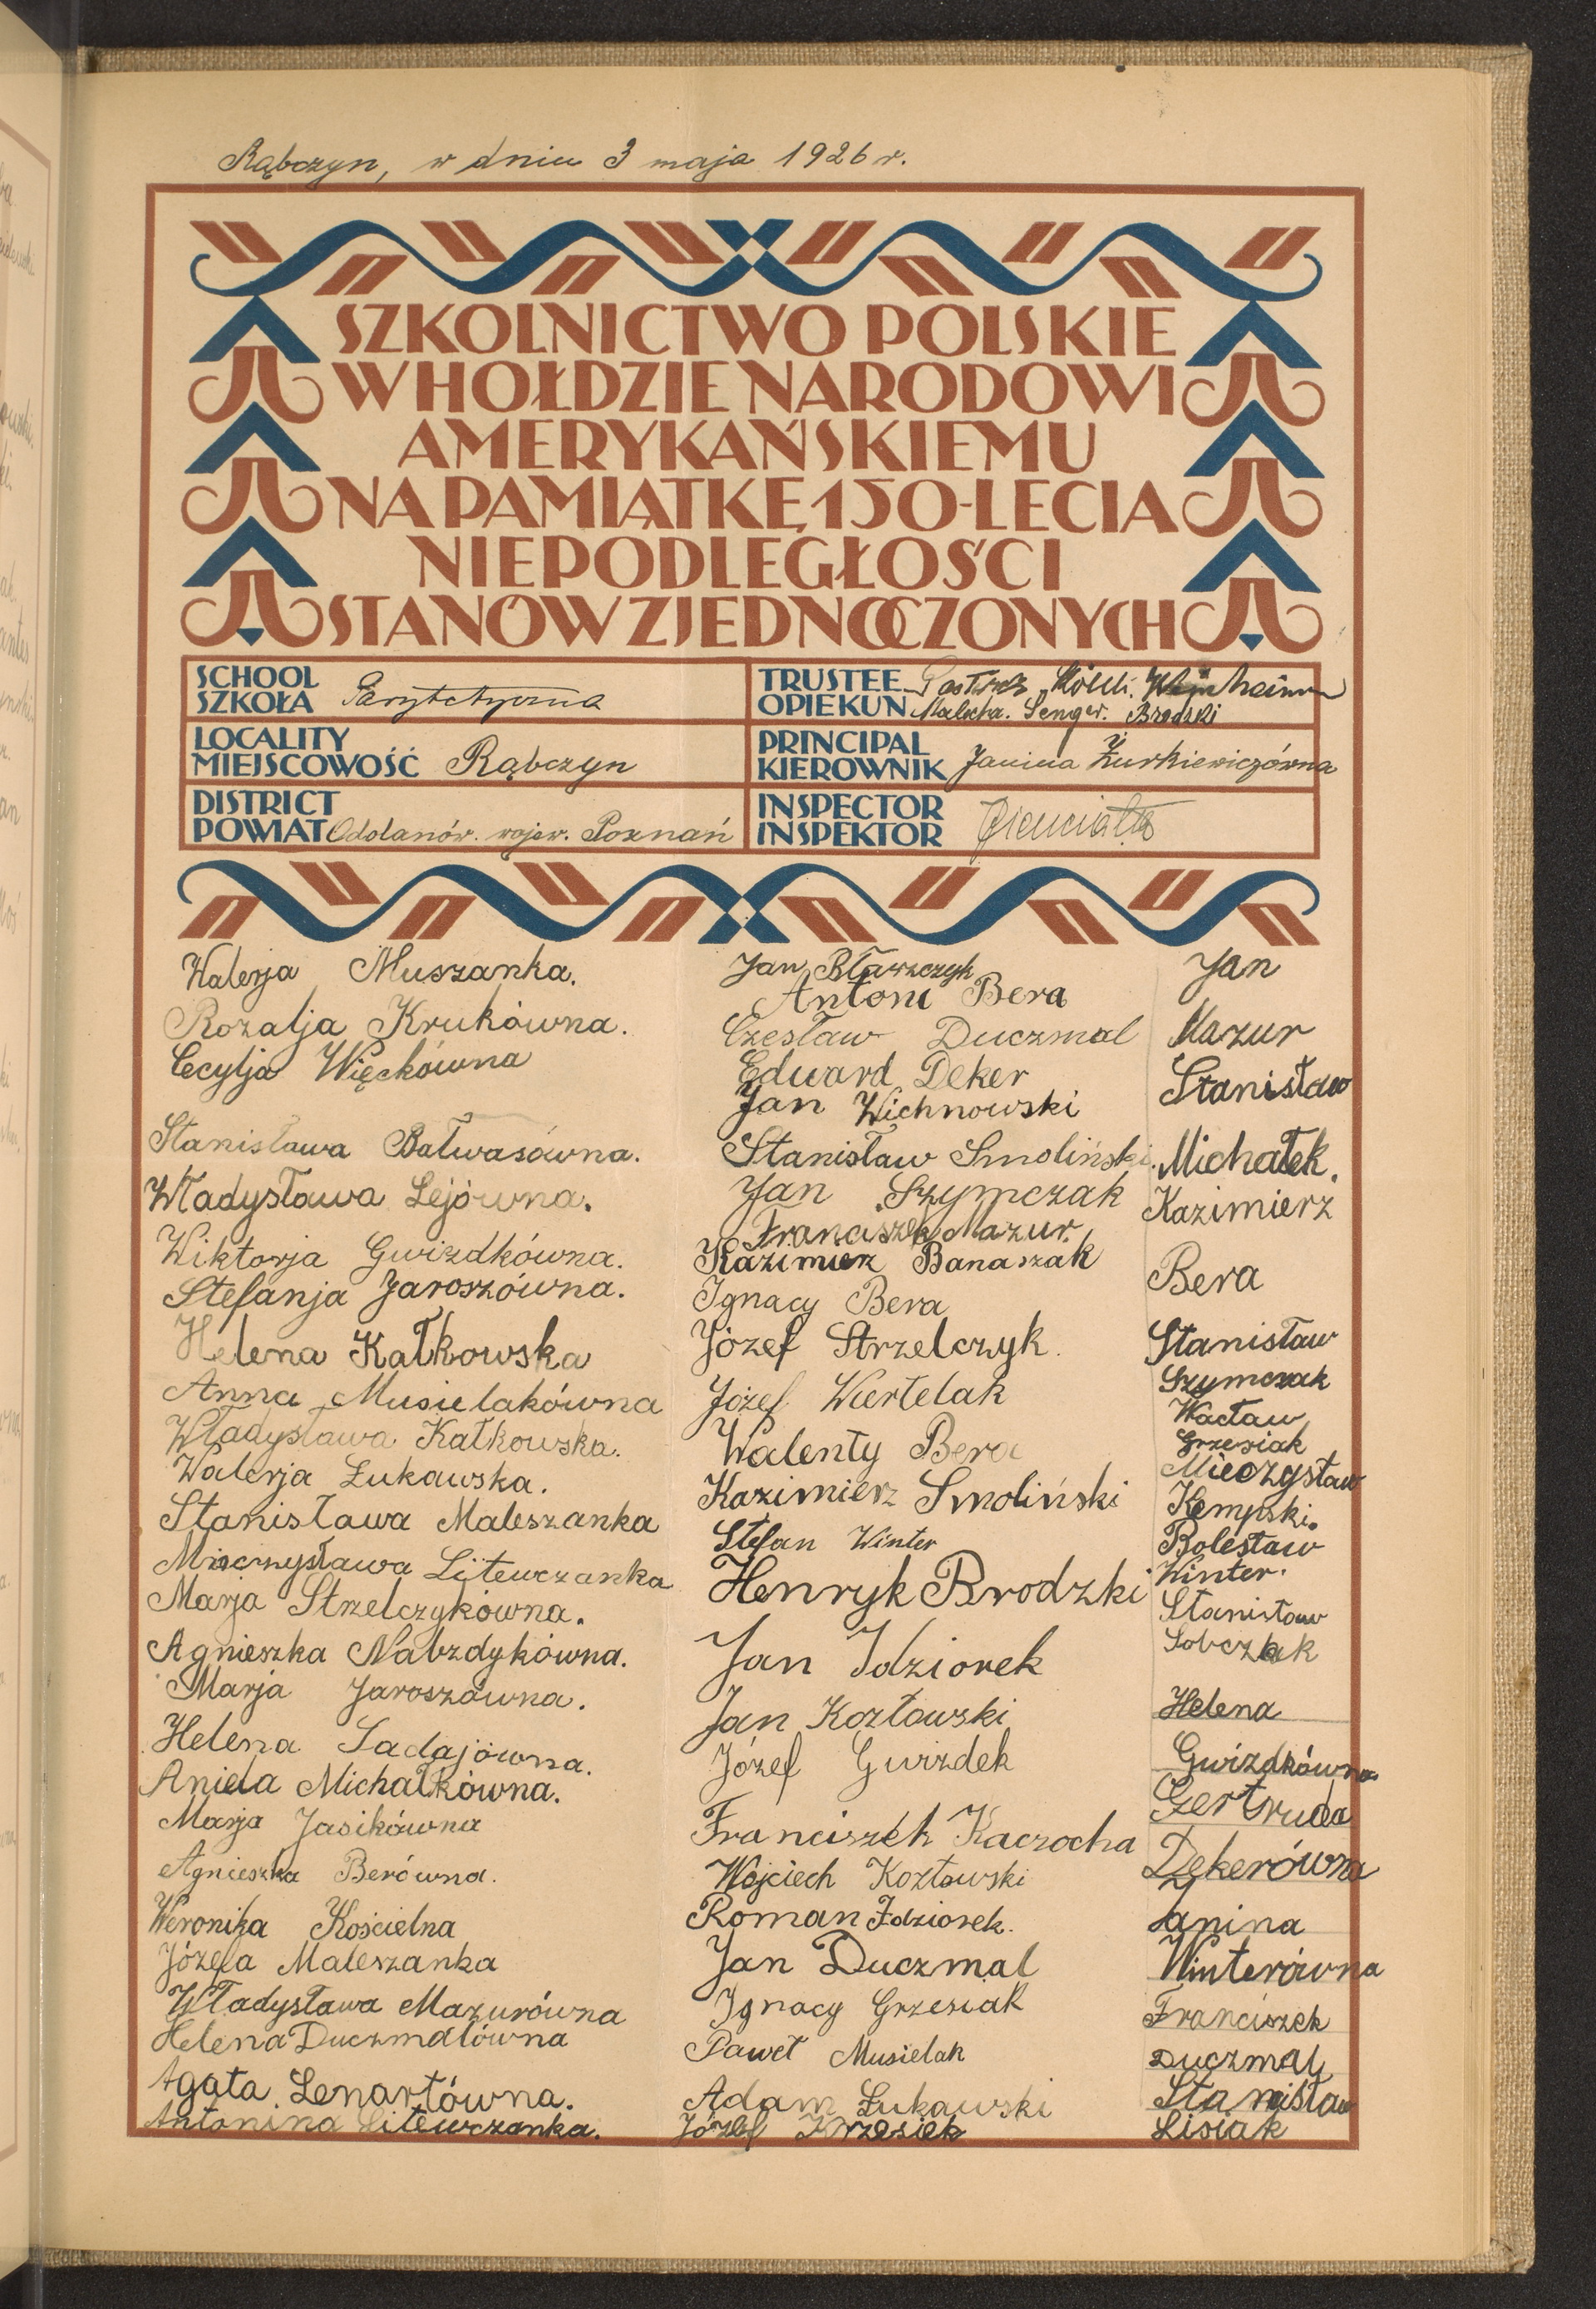 Rąbczyn, w dniu 3 maja 1926 r.
SZKOLNICTWO POLSKIE
W HOŁDZIE NARODOWI
AMERYKAŃSKIEMU
NA PAMIĄTKĘ 150-LECIA
NIEPODLEGŁOŚCI
STANÓW ZJEDNOCZONYCH
SCHOOL
SZKOŁA
LOCALITY
MIEJSCOWOŚĆ Rąbczyn
DISTRICT
POWIAT Odolanów. wojew. Poznań
TRUSTEE
OPIEKUN Malecha. Senger. Brodzki
PRINCIPAL
KIEROWNIK Janina Żurkiewiczówna
INSPECTOR
INSPEKTOR
Walerja Muszanka.
Rozalja Krukówna.
Cecylja Więckówna
Stanisława Bałwasówna.
Władysława Lejówna.
Wiktorja Gwizdkówna.
Stefanja Jaroszówna.
Helena Kałkowska
Anna Musielakówna
Władysława Kałkowska.
Walerja Łukawska.
Stanisława Maleszanka
Mieczysława Litewczanka
Marja Strzelczykówna.
Agnieszka Nabzdykówna.
Marja Jaroszówna.
Helena Sadajówna.
Aniela Michałkówna.
Marja Jasikówna
Agnieszka Berówna.
Weronika Kościelna
Józefa Maleszanka
Władysława Mazurówna
Helena Duczmalówna
Agata Lenartówna.
Antonina Litewczanka.
Jan Bławzczyk
Antoni Bera
Czesław Duczmal
Edward Deker
Jan Wichnowski
Stanisław Smoliński.
Jan Szymczak
Franciszek Mazur.
Kazimierz Banaszak
Ignacy Bera
Józef Strzelczyk.
Józef Wertelak
Walenty Bera
Kazimierz Smoliński
Stefan Winter
Henryk Brodzki
Jan Idziorek
Jan Kozłowski
Józef Gwizdek
Franciszek Kaczocha
Wojciech Kozłowski
Roman Idziorek.
Jan Duczmal
Ignacy Grzesiak
Paweł Musielak
Adam Łukawski
Józef Krzesiek
Jan
Mazur
Stanisław
Michałek.
Kazimierz
Bera
Stanisław
Szymczak
Wacław
Grzesiak
Mieczysław
Kempski.
Bolesław
Winter.
Stanisław
Sobczak
Helena
Gwizdkówna
Gertruda
Dekerówna
Janina
Winterówna
Franciszek
Duczmal
Stanisław
Lisiak